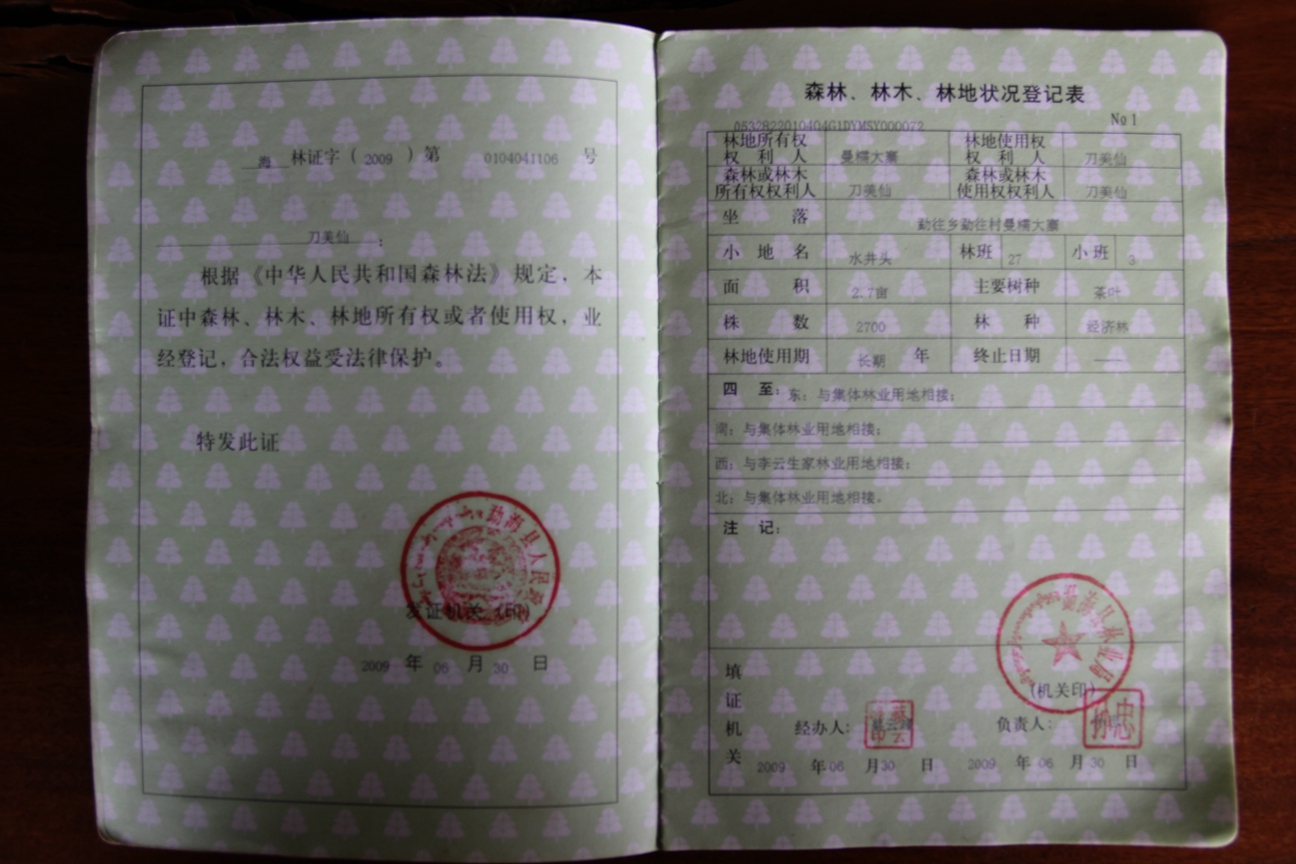 海 林证字（2009）第 0104041106 号
刀美仙：
根据《中华人民共和国森林法》规定，本
证中森林、林木、林地所有权或者使用权，业
经登记，合法权益受法律保护。
特发此证
勐海县人民
发证机关（印）
2009 年 06 月 30 日
森林、林木、林地状况登记表
0532822010404G1DYMSY000072
No 1
林地所有权权利人 曼糯大寨 林地使用权权利人 刀美仙
森林或林木所有权权利人 刀美仙 森林或林木使用权权利人 刀美仙
坐落 勐往乡勐往村曼糯大寨
小地名 水井头 林班 27 小班 3
面积 2.7亩 主要树种 茶叶
株数 2700 林种 经济林
林地使用期 长期 年 终止日期 ——
四至：东：与集体林业用地相接；
南：与集体林业用地相接；
西：与李云生家林业用地相接；
北：与集体林业用地相接。
注记：
勐海县林业局
（机关印）
填证机关
经办人： 负责人： 孙忠
2009 年 06 月 30 日 2009 年 06 月 30 日